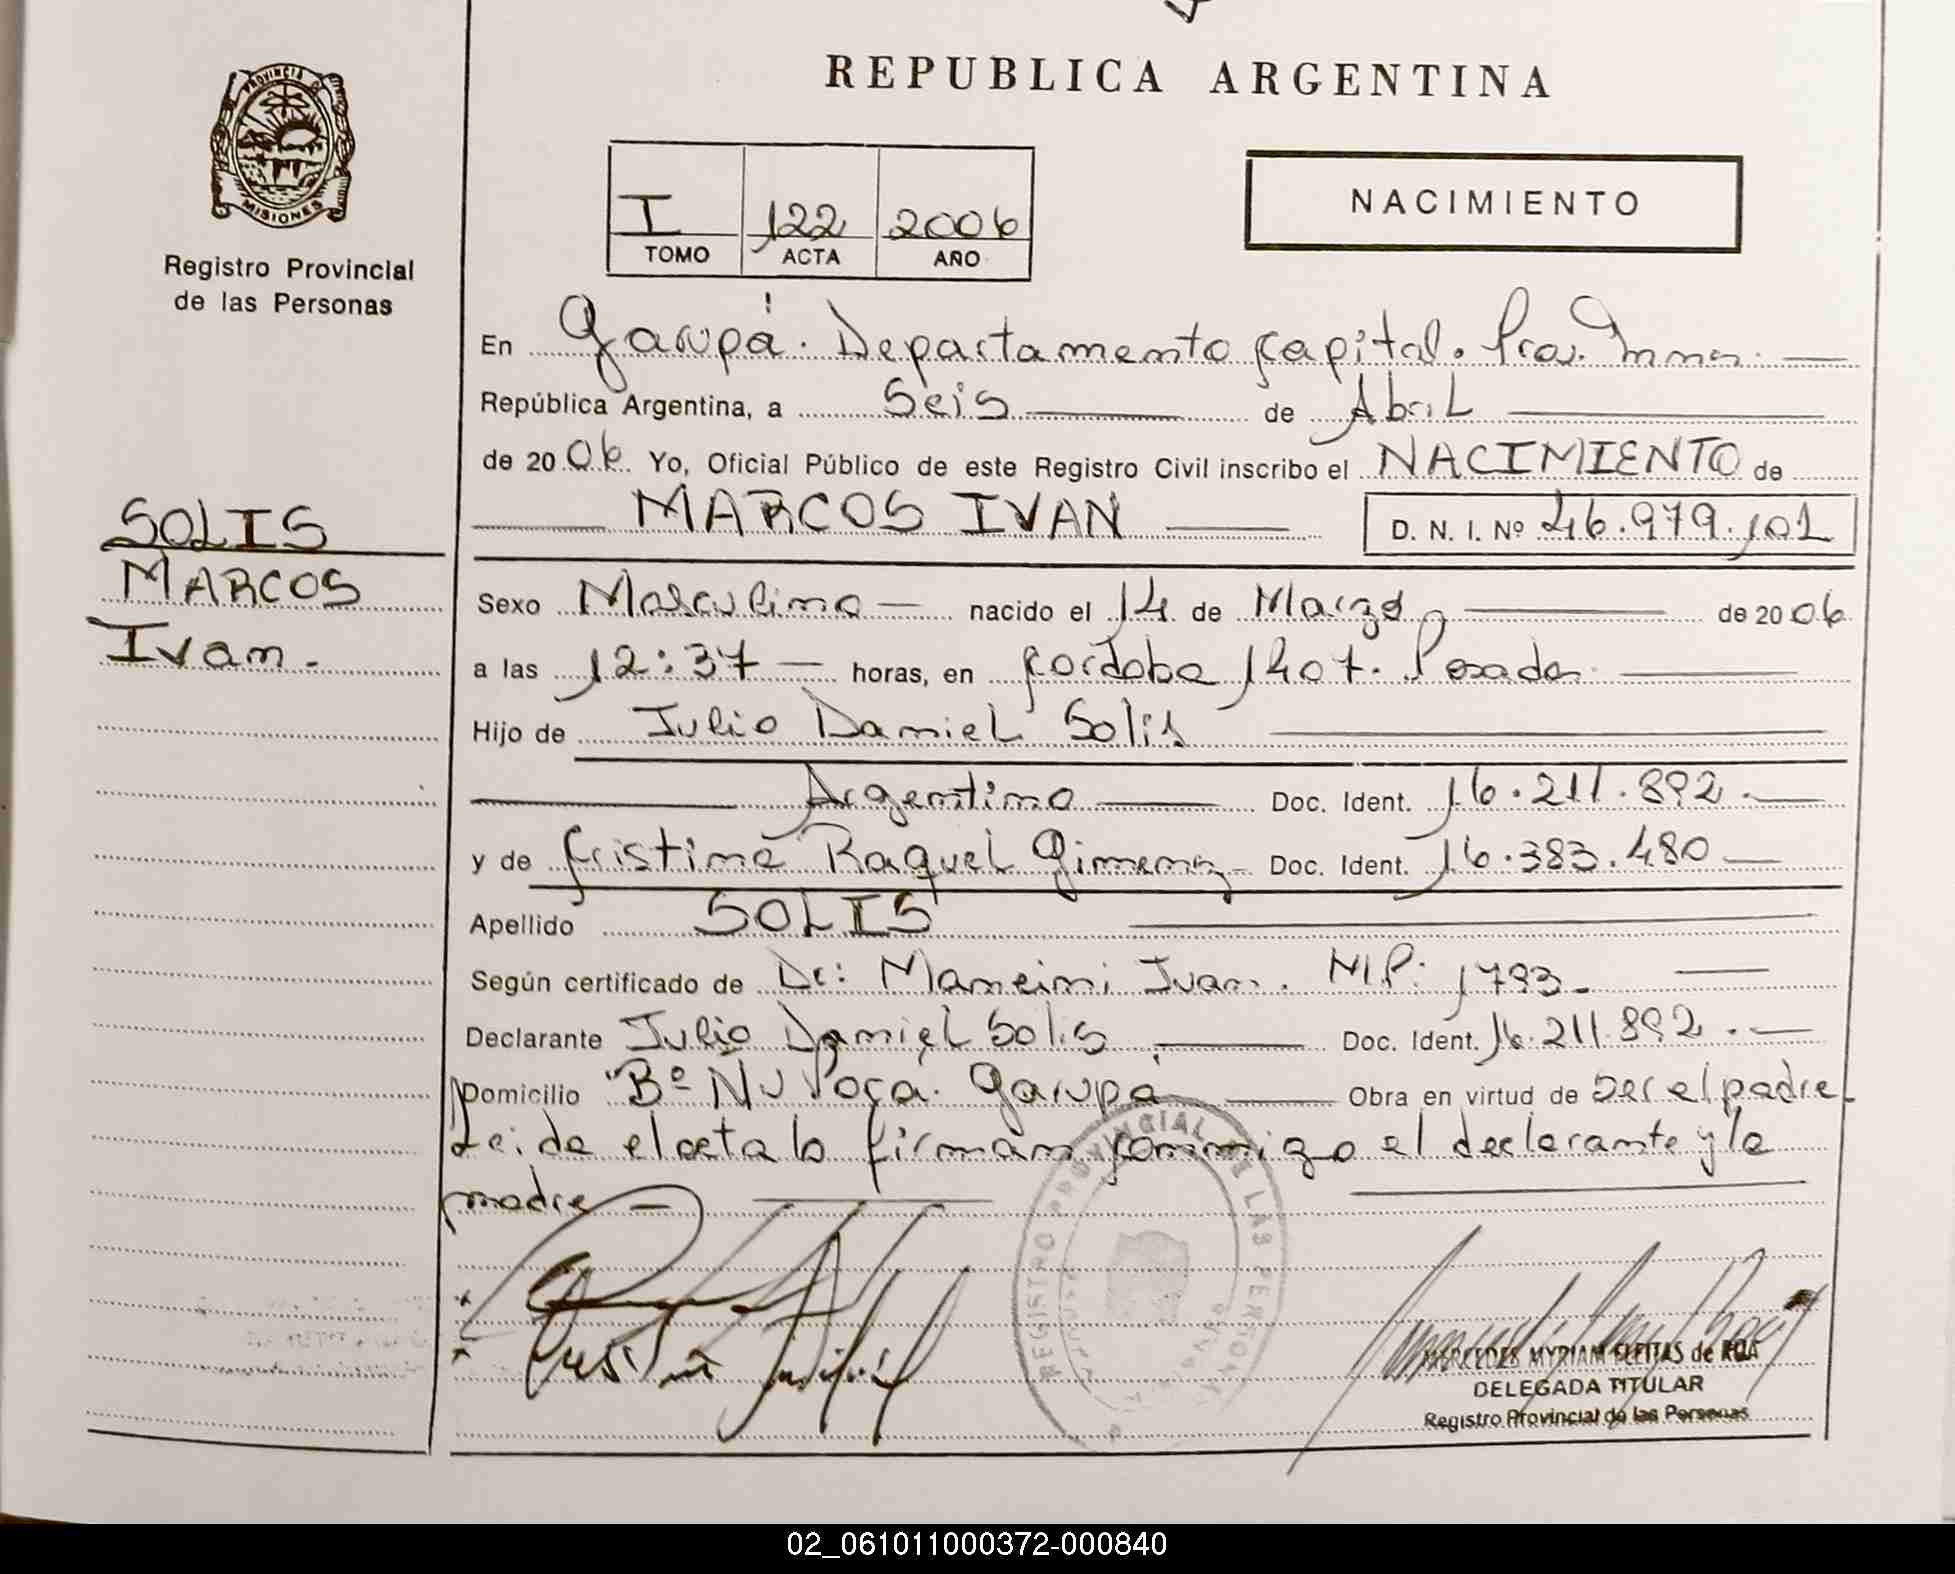 REPUBLICA ARGENTINA
PROVINCIA DE
MISIONES
Registro Provincial
de las Personas
I 122 2006
TOMO ACTA AÑO
NACIMIENTO
En Garupá. Departamento Capital. Prov. Mnes.
República Argentina, a Seis de Abril
de 2006. Yo, Oficial Público de este Registro Civil inscribo el NACIMIENTO de
MARCOS IVAN D. N. I. Nº 46.979.101
SOLIS
MARCOS
Ivan.
Sexo Masculino nacido el 14 de Marzo de 2006
a las 12:37 horas, en Córdoba 1407. Posadas
Hijo de Julio Daniel Solis
Argentino Doc. Ident. 16.211.892.
y de Cristina Raquel Gimenez Doc. Ident. 16.383.480
Apellido SOLIS
Según certificado de Dr: Ivan. MP: 1793.
Declarante Julio Daniel Solis Doc. Ident. 16.211.892.
Domicilio Bº Ñu Porá. Garupá Obra en virtud de Ser el padre
Leida el acta la firman conmigo el declarante y la
madre
REGISTRO PROVINCIAL DE LAS PERSONAS
MERCEDES MYRIAM FLEITAS de ROA
DELEGADA TITULAR
Registro Provincial de las Personas
02_061011000372-000840